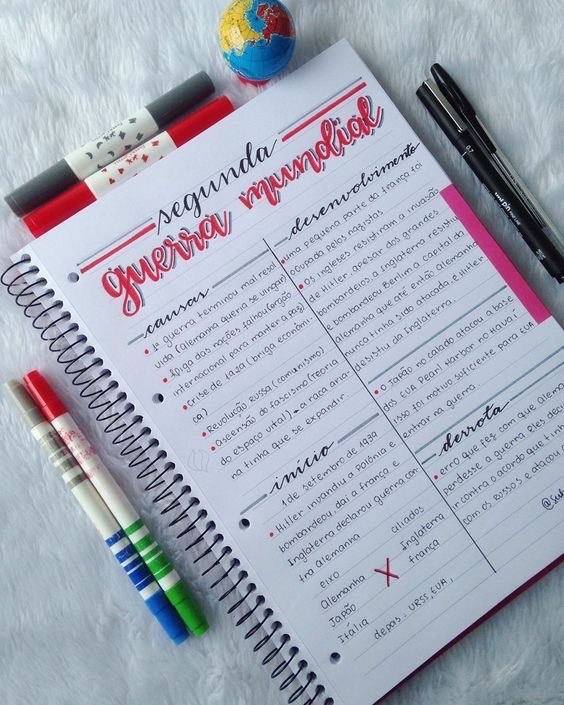 segunda
guerra mundial
causas
• 1ª guerra terminou mal resol
vida (Alemanha queria se vingar)
• liga das nações falhou (órgão
internacional para manter a paz)
• Crise de 1929 (briga econômi
ca)
• Revolução Russa (comunismo)
• Ascensão do fascismo (teoria
do espaço vital) → a raça aria-
na tinha que se expandir.
início
1 de setembro de 1939
• Hitler invandiu a Polônia e
bombardeou, daí a frança e
Inglaterra declarou guerra con-
tra Alemanha
eixo
Alemanha
Japão
Itália
X
aliados
Inglaterra
frança
depois: URSS, EUA,
desenvolvimento
• uma pequena parte da frança foi
ocupada pelos nazistas
• Os ingleses resistiram a invasão
de Hitler, apesar dos grandes
bombardeios, a Inglaterra resistiu
e bombardeou Berlim a Capital da
Alemanha que até então Alemanha
nunca tinha sido atacada, e Hitler
desistiu da Inglaterra.
• O Japão no calado atacou a base
dos EUA Pearl Harbor no Havaí
isso foi motivo suficiente para EUA
entrar na guerra.
derrota
• erro que fez com que Alema
perdesse a guerra: Eles deci
incontra o acordo que tinh
com os Russos e atacou a
uni ph
0.7